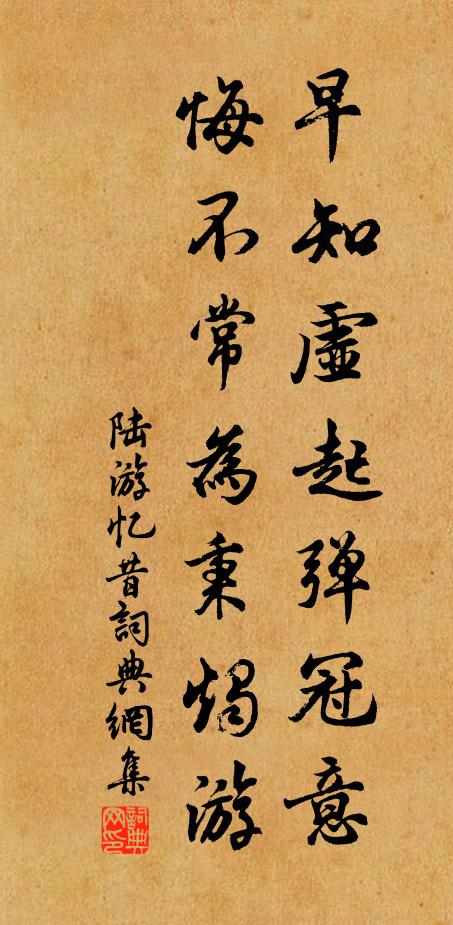 早知虛起彈冠意
悔不常為秉燭游
陆游忆昔詞典網集
詞典网印